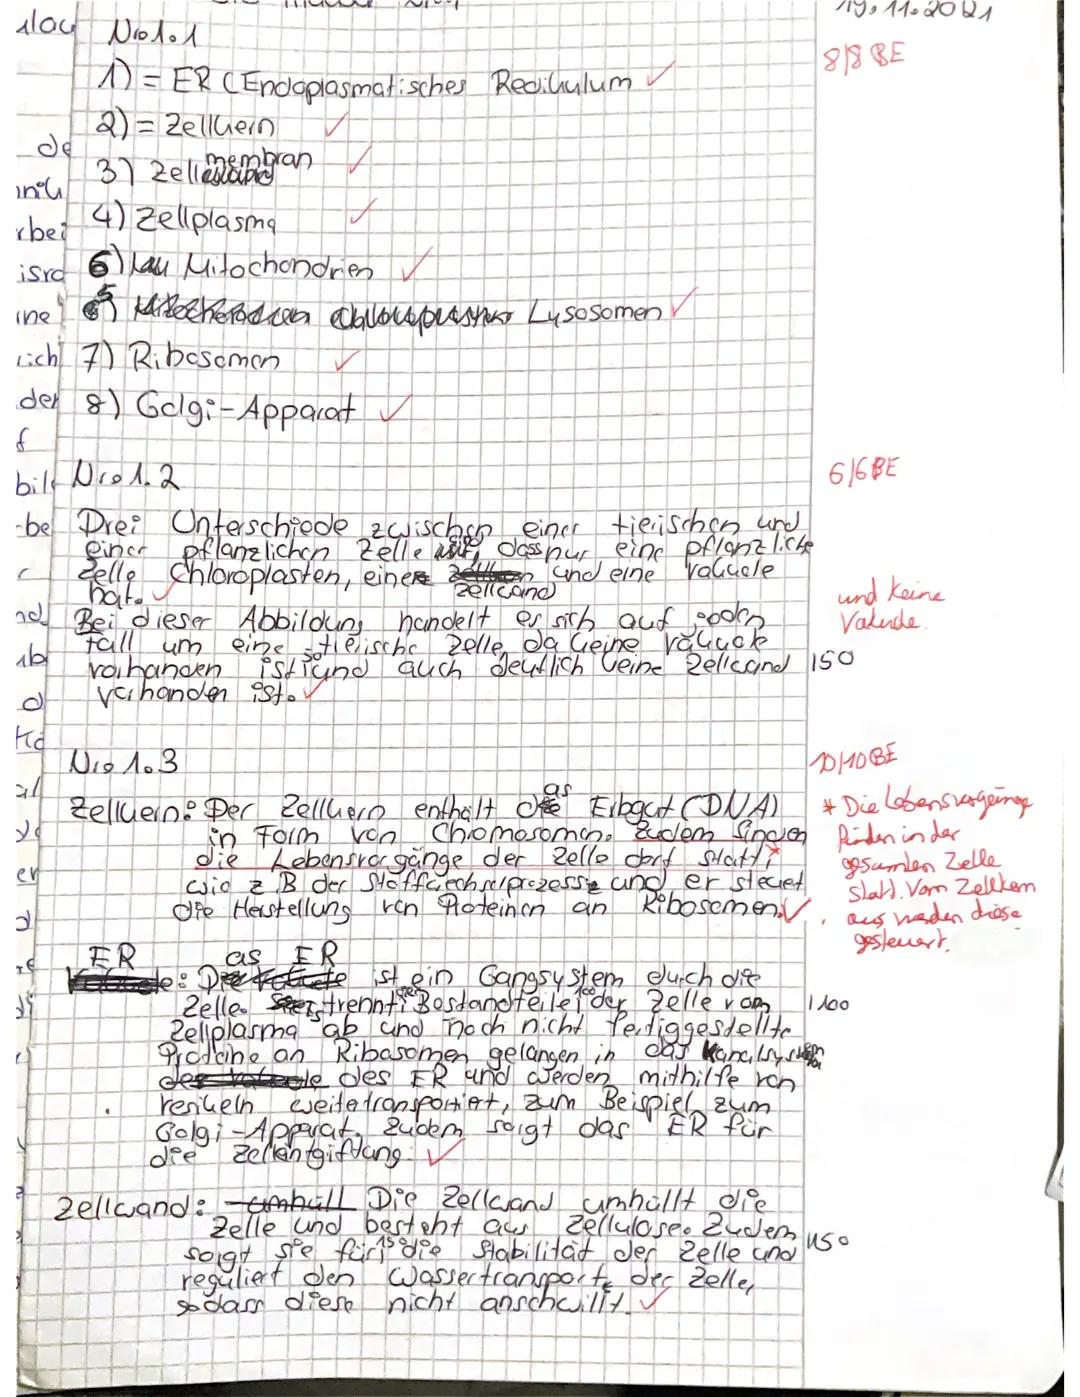 19.11.2021
Nr. 1.1
8/8 BE
1) = ER (Endoplasmatisches Redikulum
2) = Zellkern
3) Zellmembran
4) Zellplasma
6) Mitochondrien
5) Lysosomen
7) Ribosomen
8) Golgi-Apparat
Nr. 1.2
6/6 BE
Drei Unterschiede zwischen einer tierischen und
einer pflanzlichen Zelle dass nur eine pflanzliche
Zelle Chloroplasten, eine Zellwand und eine Vakuole
hat.
und keine
Vakuole.
Bei dieser Abbildung handelt es sich auf jeden
Fall um eine tierische Zelle, da keine Vakuole
vorhanden ist und auch deutlich keine Zellwand 150
vorhanden ist.
Nr. 1.3
10/10 BE
Zellkern: Der Zellkern enthält das Erbgut (DNA)
in Form von Chromosomen. Zudem finden
die Lebensvorgänge der Zelle dort statt,
wie z.B der Stoffwechselprozesse und er steuert
die Herstellung von Proteinen an Ribosomen.
* Die Lebensvorgänge
finden in der
gesamten Zelle
statt. Vom Zellkern
aus werden diese
gesteuert.
ER: Das ER ist ein Gangsystem durch die
Zelle. Es trennt Bestandteile der Zelle vom 1100
Zellplasma ab und noch nicht fertiggestellte
Proteine an Ribosomen gelangen in das Kanalsystem
des ER und werden mithilfe von
Vesikeln weitertransportiert, zum Beispiel zum
Golgi-Apparat. Zudem sorgt das ER für
die Zellentgiftung.
Zellwand: Die Zellwand umhüllt die
Zelle und besteht aus Zellulose. Zudem
sorgt sie für die Stabilität der Zelle und 1150
reguliert den Wassertransport der Zelle,
sodass diese nicht anschwillt.